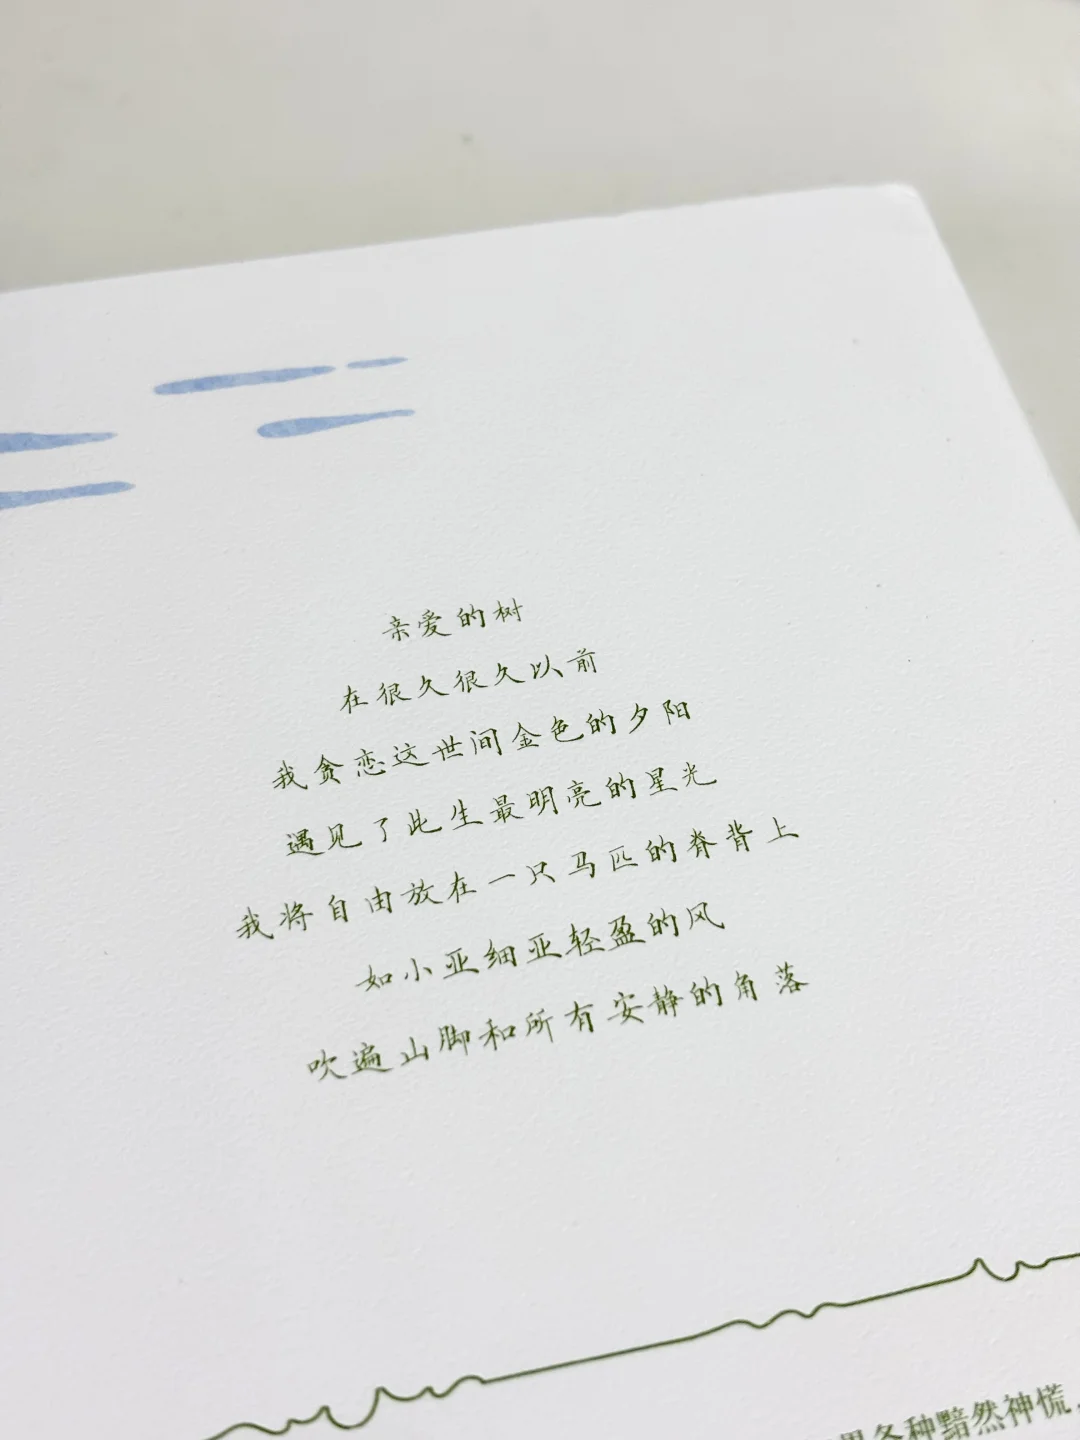 亲爱的树
在很久很久以前
我贪恋这世间金色的夕阳
遇见了此生最明亮的星光
我将自由放在一只马匹的脊背上
如小亚细亚轻盈的风
吹遍山脚和所有安静的角落
各种黯然神慌，